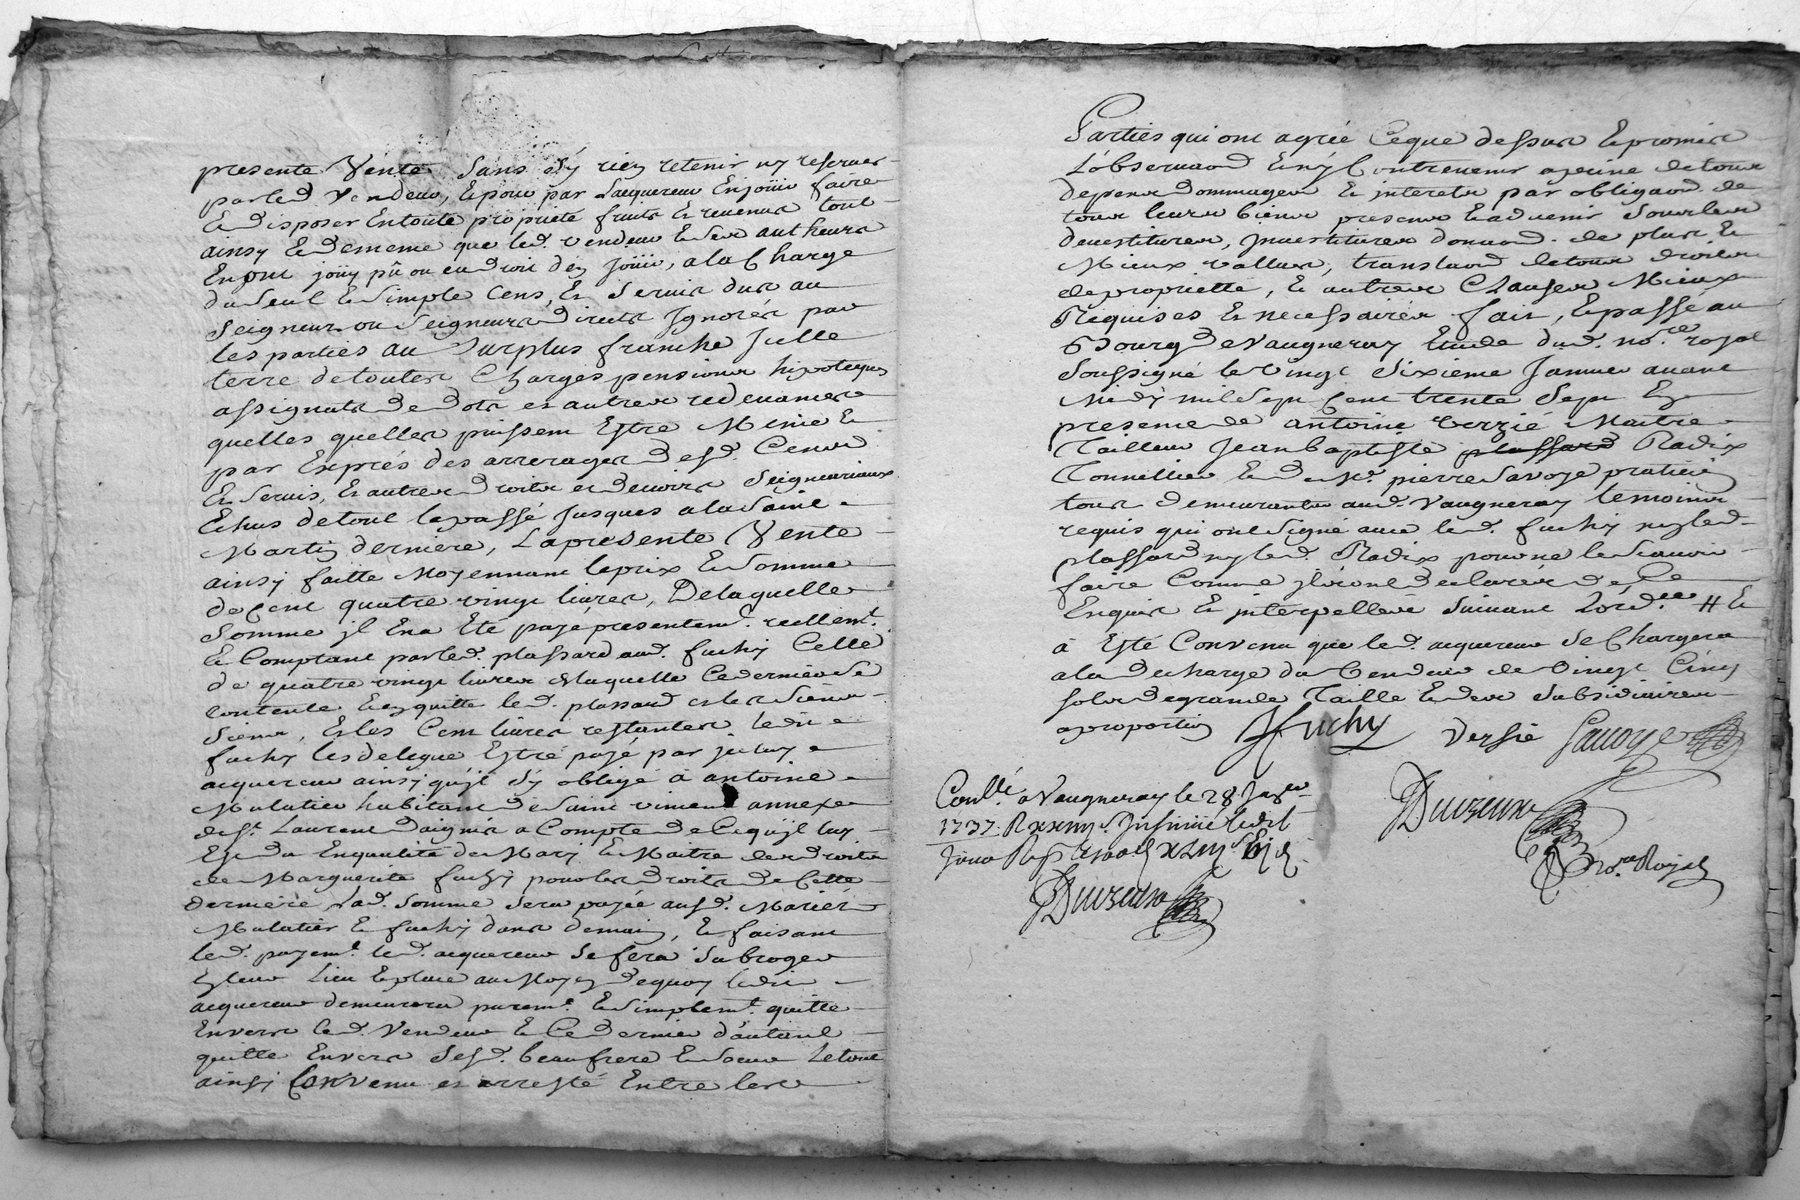 presente Vente sans s'y rien retenir ny reserver
par led vendeur, et pour par l'acquereur en jouir faire
et disposer en toute propriété fruits et revenus tout
ainsy et de meme que led. vendeur et ses autheurs
en ont jouy pû ou eu droit d'en jouir, a la Charge
du seul et simple Cens, et servis dus au
seigneur ou seigneurs directs Ignorés par
les parties au surplus franche icelle
terre de toutes Charges pensions hipoteques
assignats de dots et autres redevances
quelles quelles puissent Estre Mesme et
par Exprés des arrerages desd. Cens
et servis, et autres droits et devoirs seigneuriaux
Echus de tout le passé jusques a la saint
Martin derniere, La presente Vente
ainsy faitte Moyennant le prix et somme
de Cent quatre vingt livres, De laquelle
somme il En a Eté payé presentemt. reellemt.
et Comptant par led. plassard aud. fuchy Celle
de quatre vingt livres de laquelle Ce dernier se
Contente et en quitte led. plassard et les siens
, Et les Cent livres restantes ledit
fuchy les delegue Estre payé par
acquereur ainsy qu'jl s'y oblige a antoine
Mulatier habitant de saint vincent annexe
de St. Laurent a Compte de Ce qu'jl luy
Est du En qualité de Mary et Maitre des droits
de Marguerite fuchy pour les droits de Cette
derniere Lad. somme sera payée ausd. Mariés
Mulatier et fuchy dans demain, et faisant
led. payemt. led. acquereur se fera subroger
En leur Lieu et place au Moyen de quoy ledit
acquereur demeurera puremt. et simplemt. quitte
Envers led. Vendeur et Ce dernier d'autant
quitte Envers sesd. beaufrere et soeur Le tout
ainsy Convenu et arresté Entre les
Parties qui ont agrée Ce que dessus et promis
L'observaon et n'y Contrevenir a peine de tous
depens dommages et interets par obligaon de
tous leurs biens presens et a venir sous les
devestitures, jnvestitures donnaon. de plus et
Mieux vallus, translaon de tous droits
de proprietté, et autres Clauses Mieux
Requises et necessaires fait, et passé au
Bourg de Vaugneray Etude dud. nore. royal
soussigné le vingt sixieme Janvier avant
Midy mil sept Cent trente sept En
presence de antoine verzié Maitre
Tailleur Jean baptiste plassard Radix
Tonnellier et de Me. pierre savoye praticien
tous demeurants aud. Vaugneray temoins
requis qui ont signé avec led. fuchy ny led.
plassard ny led. Radix pour ne le sçavoir
faire Comme jls ont declarés de Ce
Enquis et interpellés suivant L'ordce. # Et
à Esté Convenu que led. acquereur se Chargera
a la decharge du Vendeur de Vingt Cinq
sols de grande Taille et des subsidiaires
a proportion fuchy Versié Savoye
Conllé. a Vaugneray le 28 Janer
1737. R
Duvzeux
Duvzeux
nore. Royal